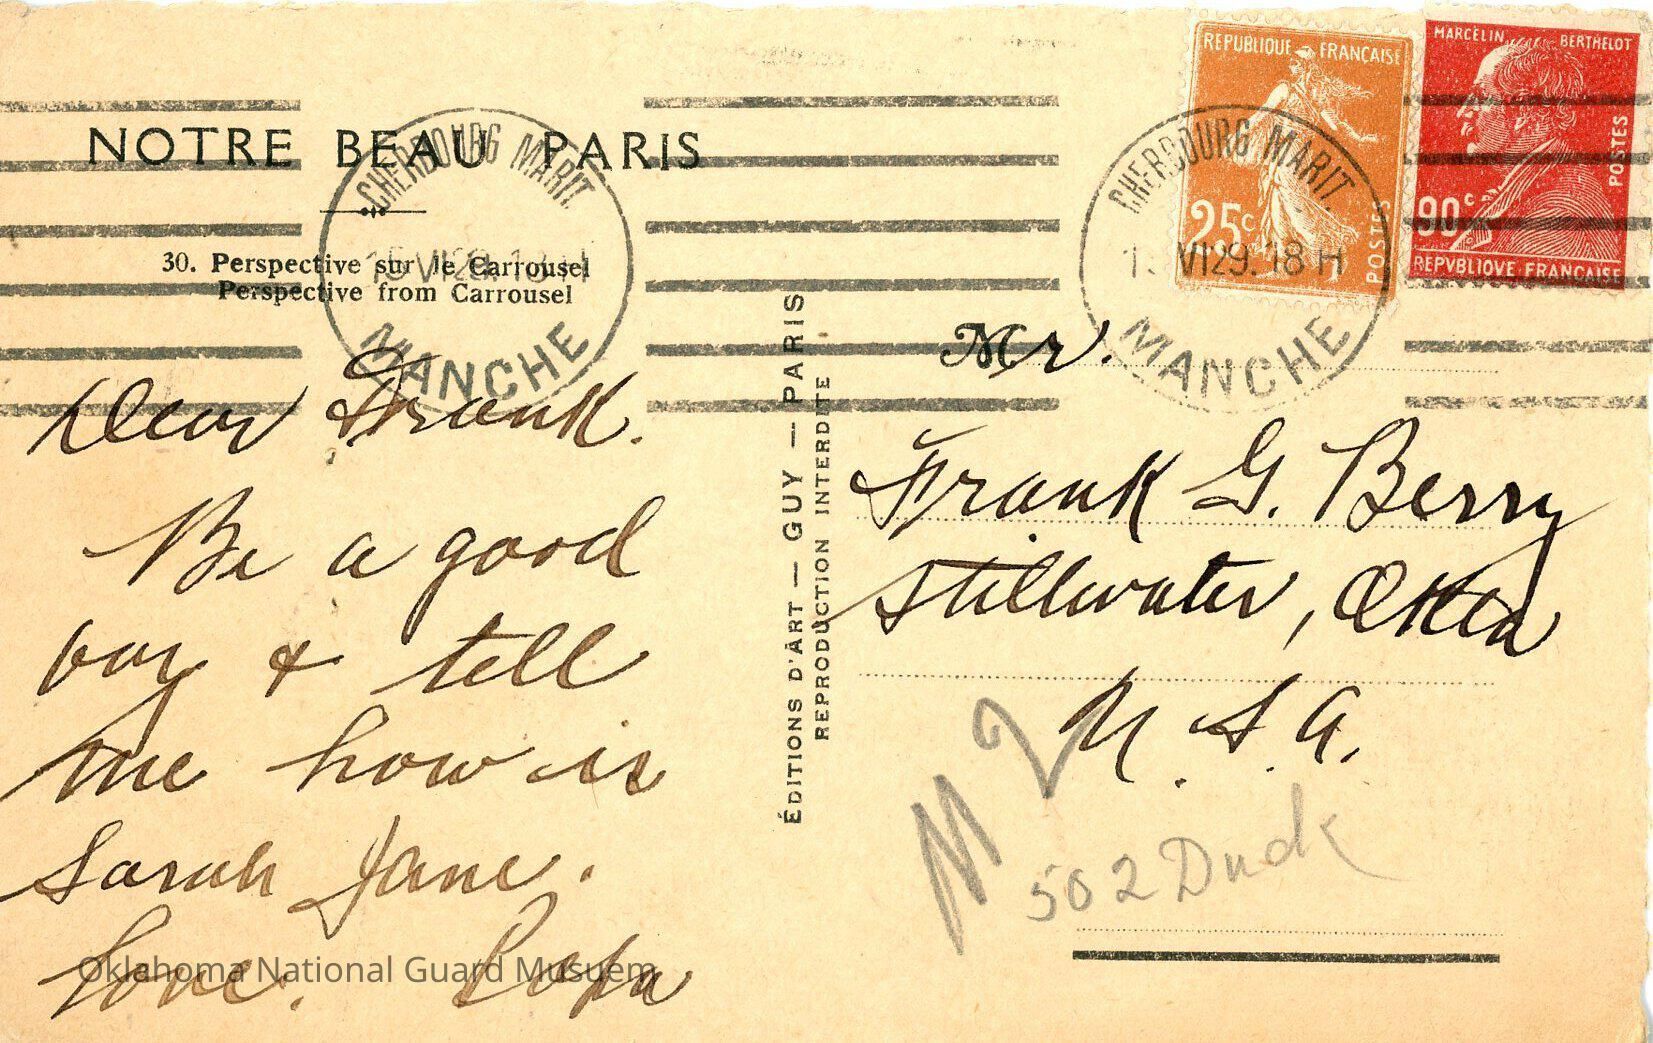 NOTRE BEAU PARIS
30. Perspective sur le Carrousel
Perspective from Carrousel
CHERBOURG MARIT.
15 VI 29. 18 H
MANCHE
Dear Frank.
Be a good
boy & tell
me how is
Sarah Jane.
Love. Papa
Oklahoma National Guard Musuem
ÉDITIONS D'ART — GUY — PARIS
REPRODUCTION INTERDITE
REPUBLIQUE FRANÇAISE
25c
POSTES
MARCELIN BERTHELOT
POSTES
90c
REPVBLIQVE FRANÇAISE
CHERBOURG MARIT
VI 29. 18 H
MANCHE
Mr.
Frank G. Berry
Stillwater, Okla
U. S. A.
502 Duck